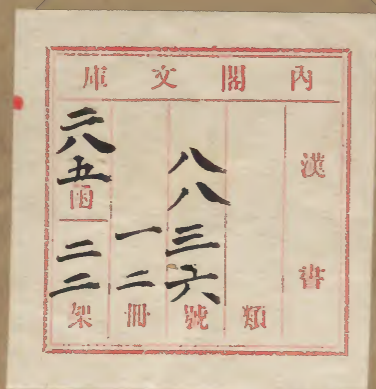 內閣文庫
漢書
類
八八三六號
一二冊
二八五函
二二架